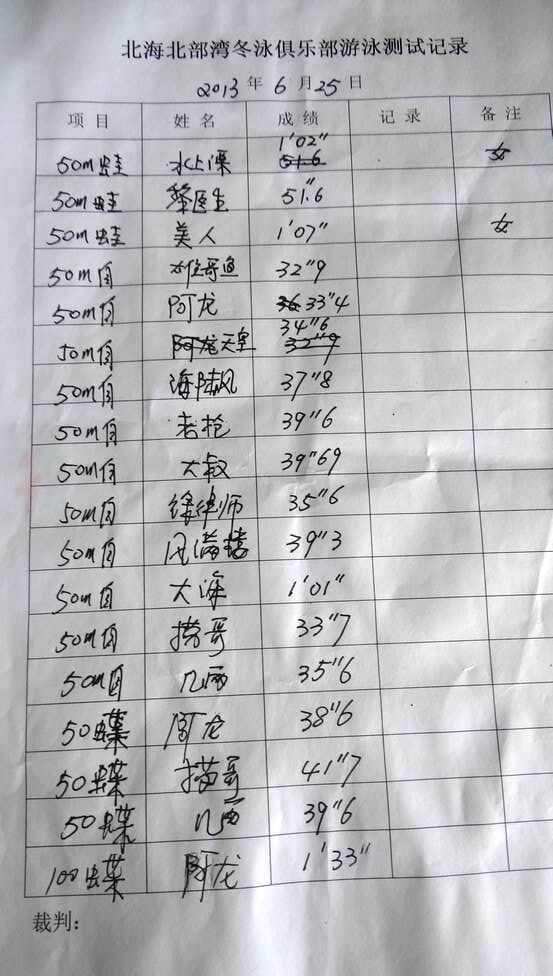 北海北部湾冬泳俱乐部游泳测试记录
2013年6月25日
项目 姓名 成绩 记录 备注
50m蛙 水上漂 1'02" 51.6 女
50m蛙 黎医生 51"6
50m蛙 美人 1'07" 女
50m自 32"9
50m自 阿龙 36 33"4
50m自 阿龙 天皇 34"6 32"9
50m自 海陆风 37"8
50m自 老枪 39"6
50m自 大叔 39"69
50m自 徐律师 35"6
50m自 风满楼 39"3
50m自 大深 1'01"
50m自 哥 33"7
50m自 几面 35"6
50蝶 阿龙 38"6
50蝶 哥 41"7
50蝶 几面 39"6
100蝶 阿龙 1'33"
裁判: